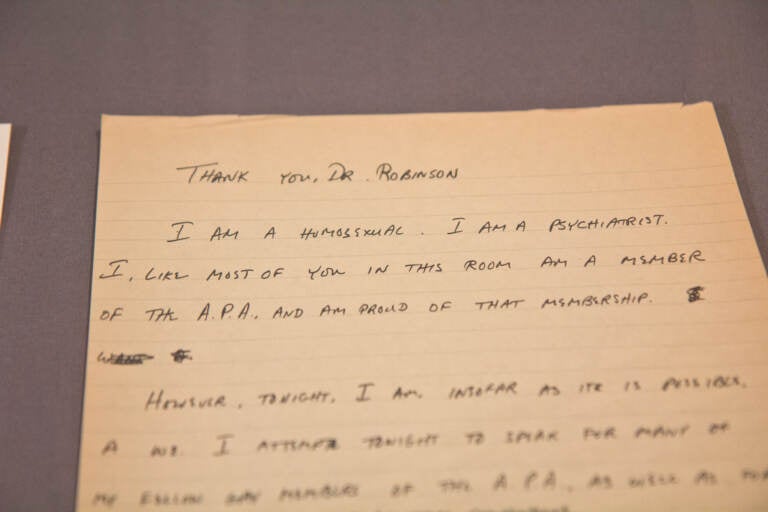 THANK YOU, DR. ROBINSON
I AM A HOMOSEXUAL. I AM A PSYCHIATRIST.
I, LIKE MOST OF YOU IN THIS ROOM AM A MEMBER
OF THE A.P.A., AND AM PROUD OF THAT MEMBERSHIP.
HOWEVER, TONIGHT, I AM, INSOFAR AS IT IS POSSIBLE,
A WE. I ATTEMPT TONIGHT TO SPEAK FOR MANY OF
MY FELLOW GAY MEMBERS OF THE A.P.A., AS WELL AS FOR